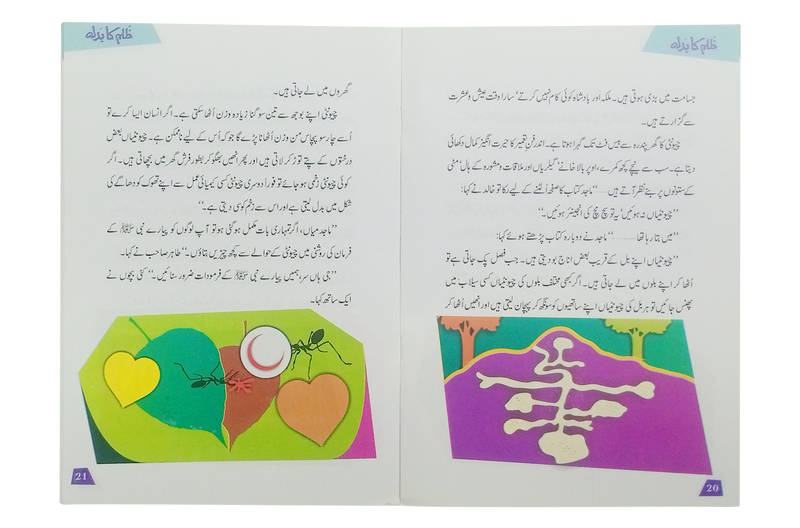 ظلم کا بدلہ
جسامت میں بڑی ہوتی ہیں۔ ملکہ اور بادشاہ کوئی کام نہیں کرتے‘ سارا وقت عیش و عشرت
سے گزارتے ہیں۔
چیونٹی کا گھر پندرہ سے بیس فٹ تک گہرا ہوتا ہے۔ اندر فنِ تعمیر کا حیرت انگیز کمال دکھائی
دیتا ہے۔ سب سے نیچے کچھ کمرے، اوپر بالا خانے‘ گیلریاں اور ملاقات و مشورہ کے ہال‘ مٹی
کے ستونوں پر بنے نظر آتے ہیں۔۔۔۔ ‘‘ماجد کتاب کا صفحہ اُلٹنے کے لیے رکا تو خالد نے کہا:
’’چیونٹیاں نہ ہوئیں‘ یہ تو سچ مچ کی انجینئر ہوئیں۔‘‘
’’میں بتا رہا تھا.........‘‘ ماجد نے دوبارہ کتاب پڑھتے ہوئے کہا:
’’چیونٹیاں اپنے بل کے قریب بعض اناج بو دیتی ہیں۔ جب فصل پک جاتی ہے تو
اُٹھا کر اپنے بلوں میں لے جاتی ہیں۔ اگر کبھی مختلف بلوں کی چیونٹیاں کسی سیلاب میں
پھنس جائیں تو ہر بل کی چیونٹیاں اپنے ساتھیوں کو سونگھ کر پہچان لیتی ہیں اور انھیں اُٹھا کر
20
ظلم کا بدلہ
گھروں میں لے جاتی ہیں۔
چیونٹی اپنے بوجھ سے تین سو گنا زیادہ وزن اُٹھا سکتی ہے۔ اگر انسان ایسا کرے تو
اُسے چار سو پچاس من وزن اُٹھانا پڑے گا جو کہ اُس کے لیے ناممکن ہے۔ چیونٹیاں بعض
درختوں کے پتے توڑ کر لاتی ہیں اور پھر انھیں بھگو کر بطور فرش گھر میں بچھاتی ہیں۔ اگر
کوئی چیونٹی زخمی ہو جائے تو فوراً دوسری چیونٹی کسی کیمیائی عمل سے اپنے تھوک کو دھاگے کی
شکل میں بدل لیتی ہے اور اس سے زخم کو سی دیتی ہے۔‘‘
’’ماجد میاں، اگر تمہاری بات مکمل ہو گئی ہو تو آپ لوگوں کو پیارے نبی ﷺ کے
فرمان کی روشنی میں چیونٹی کے حوالے سے کچھ چیزیں بتاؤں۔‘‘ طاہر صاحب نے کہا۔
’’جی ہاں سر، ہمیں پیارے نبی ﷺ کے فرمودات ضرور سنائیں۔‘‘ کئی بچوں نے
ایک ساتھ کہا۔
21